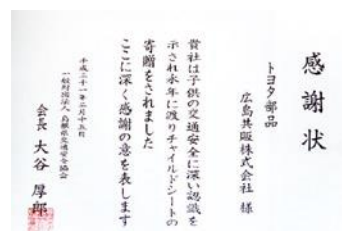 感謝状
トヨタ部品
広島共販株式会社 様
貴社は子供の交通安全に深い認識を
示され永年に渡りチャイルドシートの
寄贈をされました
ここに深く感謝の意を表します
平成二十一年三月十五日
一般財団法人 島根県交通安全協会
会長 大谷 厚郎